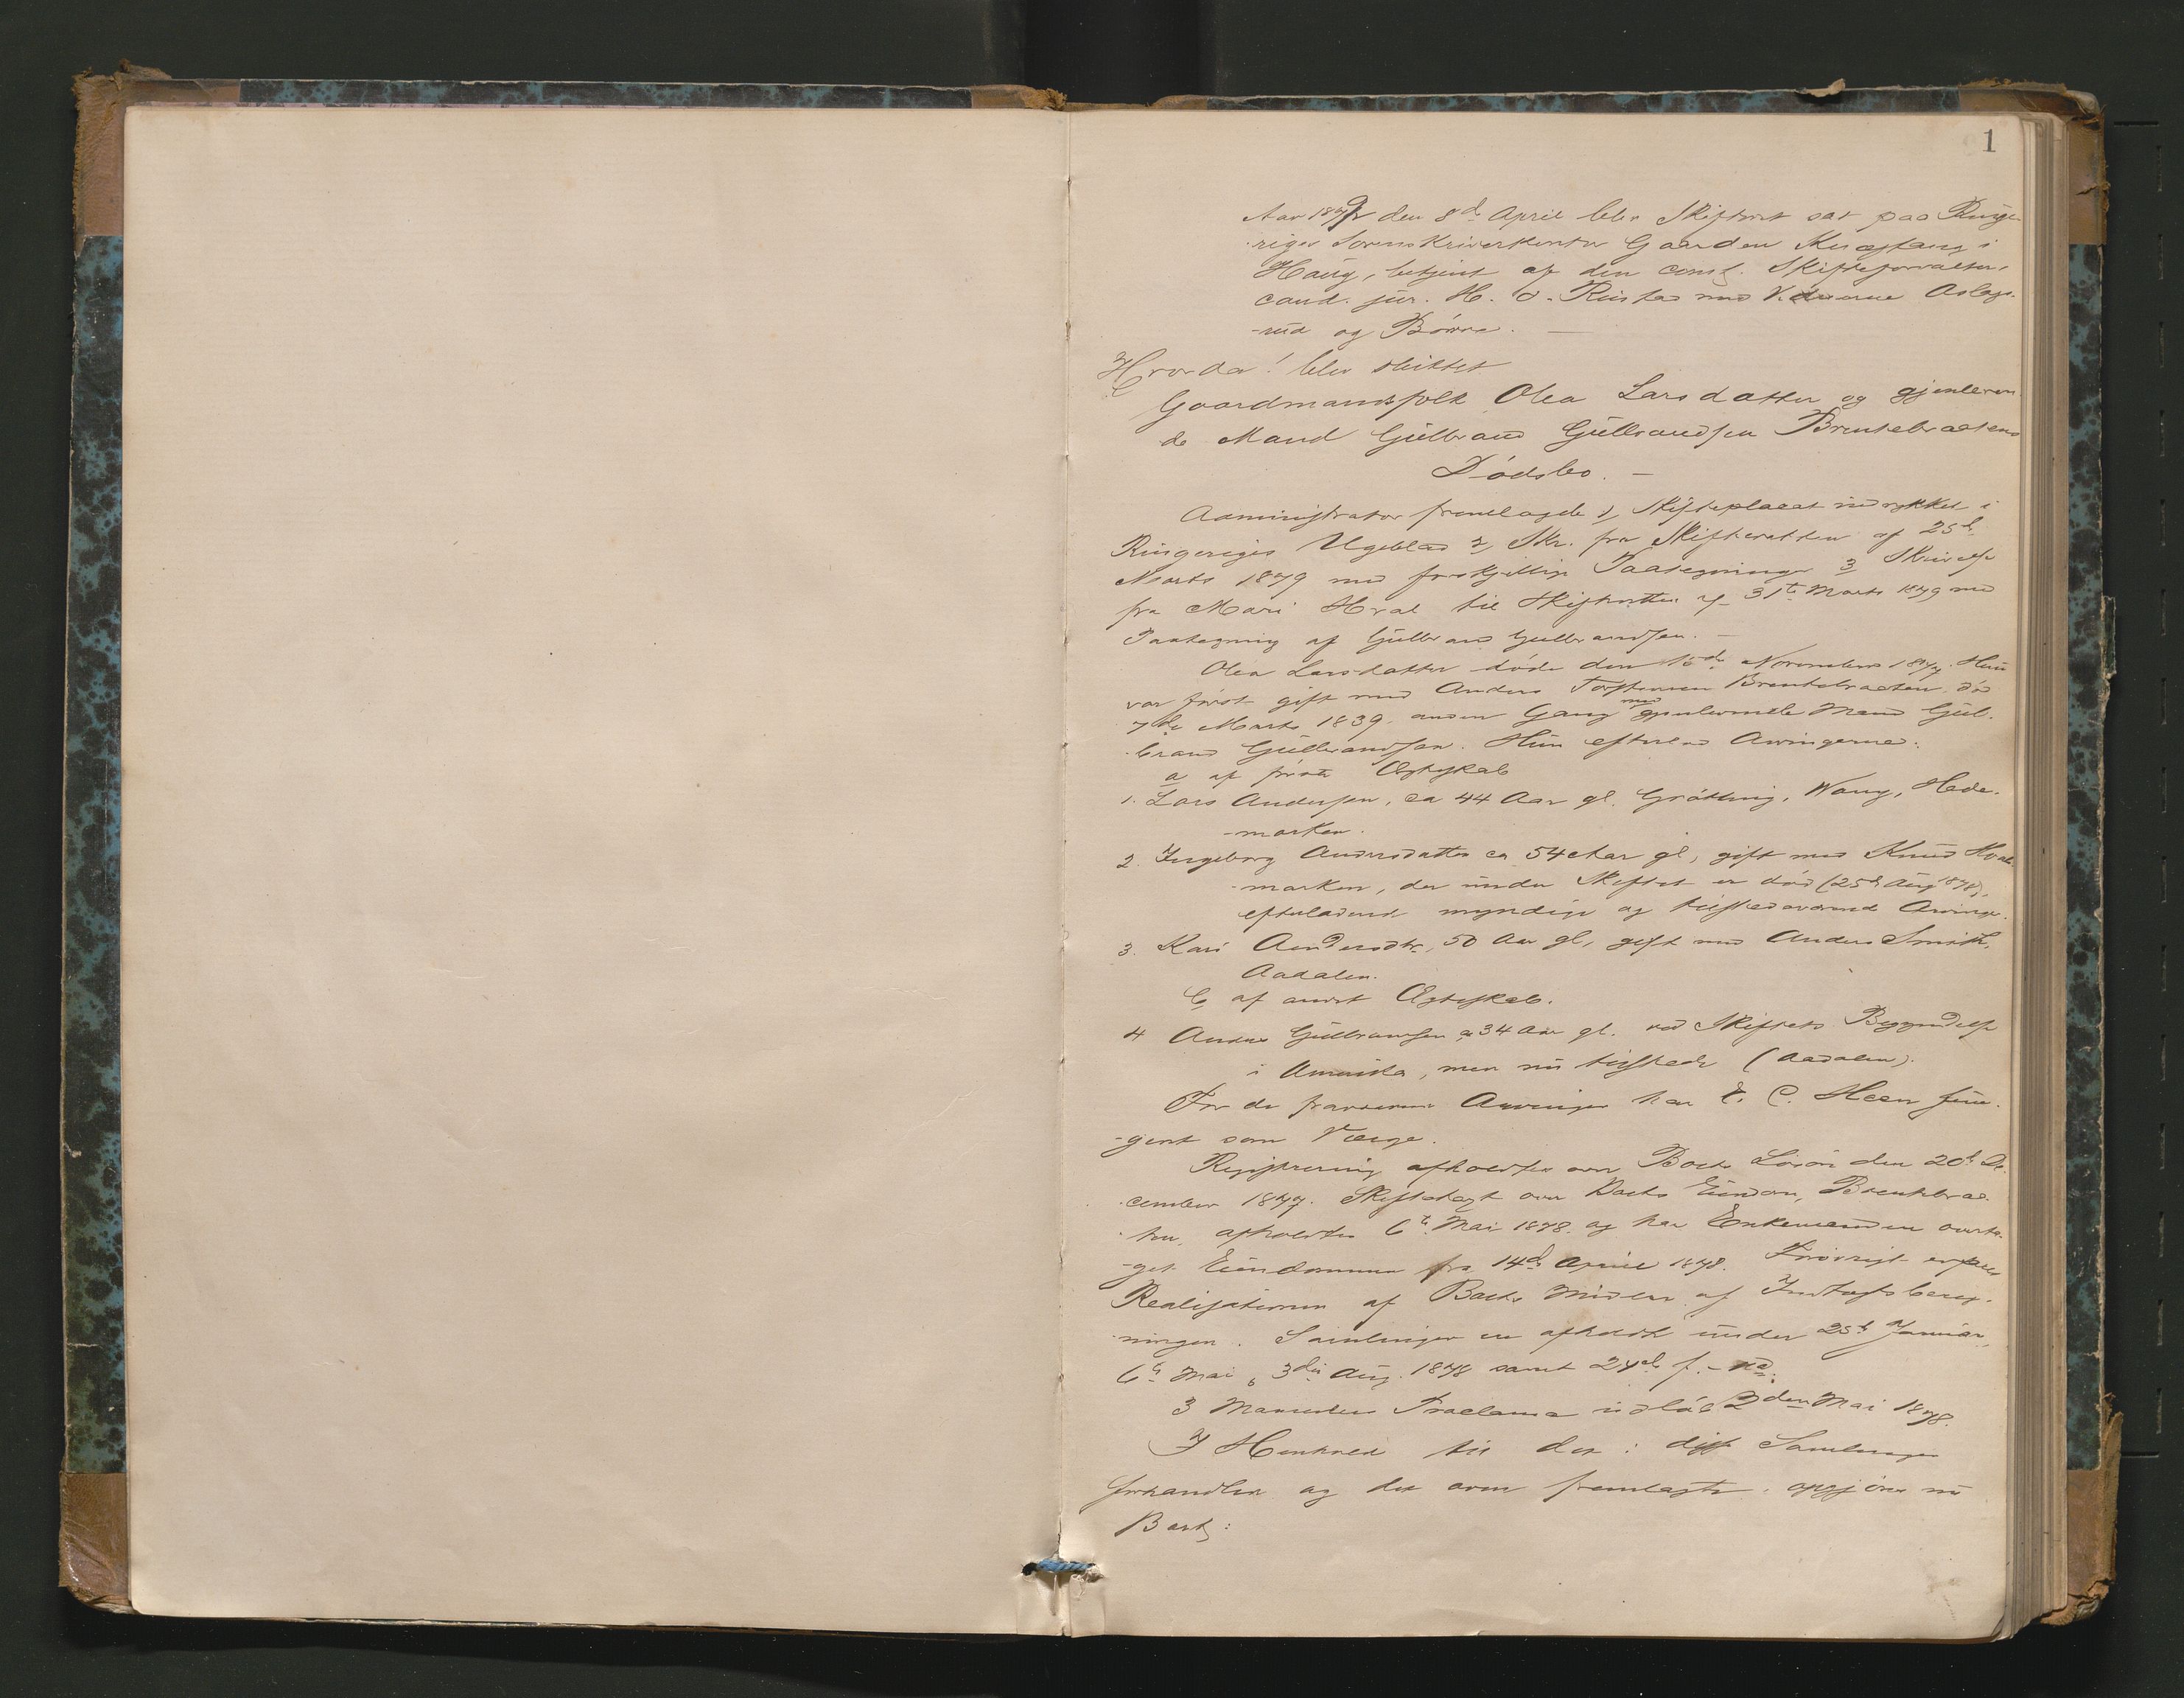 1
Aar 1879 den 8de April blev Skifteret sat paa Ringe-
riges Sorenskriverkontor Gaarden i
Haug, betjent af den const. Skifteforvalter,
cand. jur. H. O. Rustad med Vidnerne Aslags-
-rud og Börre. —
Hvorda! blev sluttet
Gaardmandsfolk Olea Larsdatter og gjenleven-
de Mand Gulbrand Gulbrandsen Brentebraatens
Dödsbo. —
Administrator fremlagde 1, Skifteplacat indrykket i
Ringeriges Ugeblad 2, Skr. fra Skifteretten af 25de
Marts 1879 med forskjellige Paategninger 3 Skrivelse
fra Mari Hval til Skifteretten af 31te Marts 1879 med
Paategning af Gulbrand Gulbrandsen. —
Olea Larsdatter döde den 15de November 1877. Hun
var först gift med Anders Torstensen Brentebraaten död
7de Marts 1839. anden Gang med gjenlevende Mand Gul-
brand Gulbrandsen. Hun efterlod Arvingerne:
a af förste Ægteskab
1. Lars Andersen, ca 44 Aar gl. Gröthing, Vang, Hede-
-marken.
2. Ingeborg Andersdatter ca 54 Aar gl, gift med Knud Hval-
-marken, der under Skiftet er död (25de Aug 1878),
efterladende myndige og tilstedeværende Arvinger.
3. Kari Andersdtr, 50 Aar gl, gift med Anders Smith,
Aadalen.
b, af andet Ægteskab.
4 Anders Gulbrandsen ca 34 Aar gl. ved Skiftets Begyndelse
i Amerika, men nu tilstede (Aadalen).
For de fraværende Arvinger har E. C. Heen fun-
-geret som Værge.
Registrering afholdtes over Boets Lösöre den 20de De-
cember 1877. Skiftetagt over Boets Eiendom, Brentebraa-
ten, afholdtes 6te Mai 1878. og har Enkemanden overta-
-get Eiendommen fra 14de April 1878. Forövrigt erfares
Realisationen af Boets Midler af Indtægtsbereg-
-ningen. Samlinger er afholdt under 25de Januar,
6te Mai, 3die Aug. 1878 samt 24de f. M.
3 Maaneders Proclama udlöb 2den Mai 1878.
I Henhold til det i disse Samlinger
forhandlede og det ovenfremlagte, opgjöres nu
Boet: